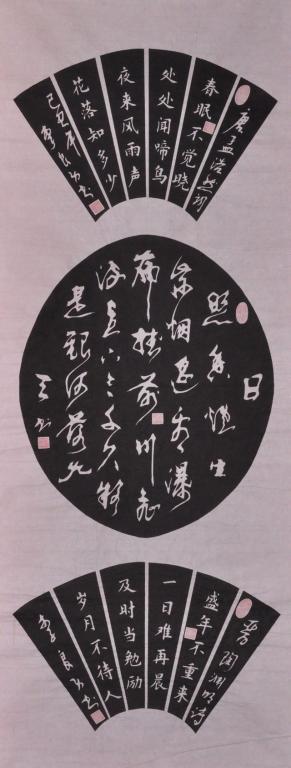 唐孟浩然诗
春眠不觉晓
处处闻啼鸟
夜来风雨声
花落知多少
己丑年
书
日
照香炉生
紫烟遥看瀑
布挂前川飞
流直下三千尺疑
是银河落九
天
书
晋陶渊明诗
盛年不重来
一日难再晨
及时当勉励
岁月不待人
良
书